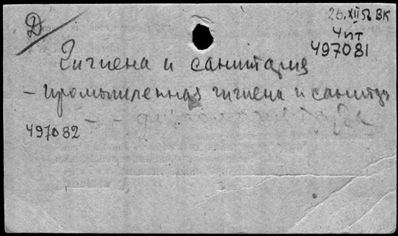 Д
26.XII 52 ВК
Чит
497081
Гигиена и санитария
- промышленная гигиена и санитар
- -
497082